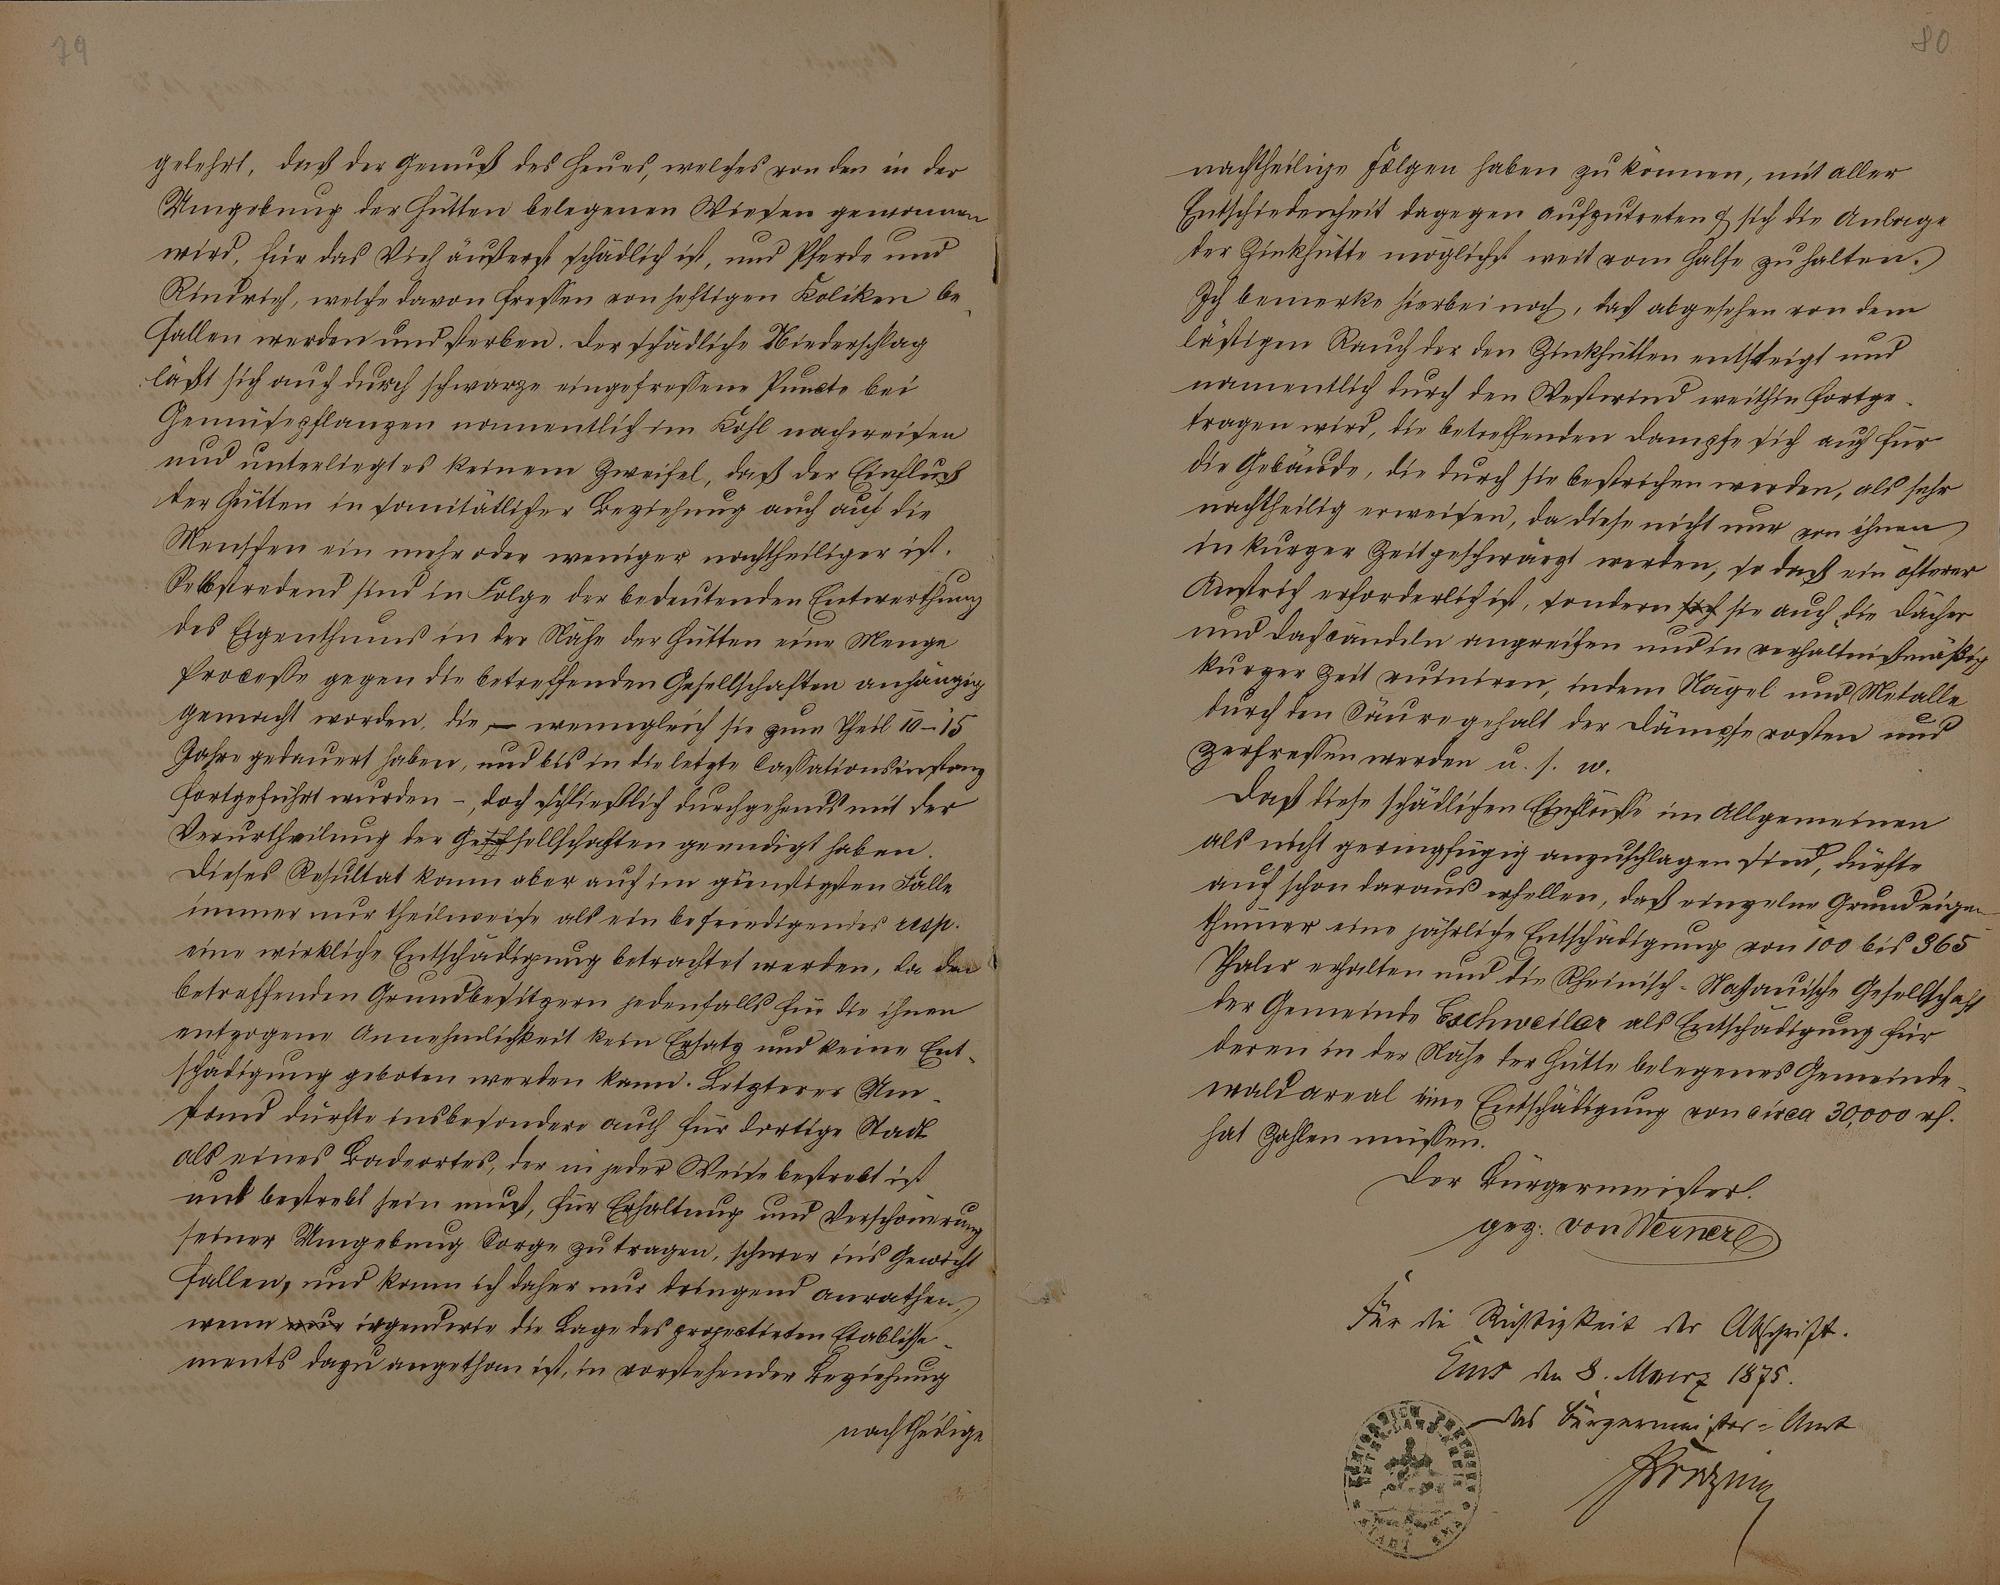 79
gelehrt, daß der Genuß des Heues, welches von den in der
Umgebung der Hütten belegenen Wiesen gewonnen
wird, für das Vieh äußerst schädlich ist, und Pferde und
Rindvieh, welche davon fressen von heftigen Koliken be-
fallen werden und sterben. Der schädliche Niederschlag
läßt sich auch durch schwarze eingefressene Puncte bei
Gemüsepflanzen namentlich im Kohl nachweisen
und unterliegt es keinem Zweifel, daß der Einfluß
der Hütten in sanitätlicher Beziehung auch auf die
Menschen ein mehr oder weniger nachtheiliger ist.
Selbstredend sind in Folge der bedeutenden Entwerthung
des Eigenthums in der Nähe der Hütten eine Menge
Processe gegen die betreffenden Gesellschaften anhängig
gemacht worden, die – wenngleich sie zum Theil 10–15
Jahre gedauert haben, und bis in die letzte Cassationsinstanz
fortgeführt wurden –, doch schließlich durchgehends mit der
Verurtheilung der Gesellschaften geendigt haben.
Dieses Resultat kann aber auch im günstigsten Falle
immer nur theilweise als ein befriedigendes resp.
eine wirkliche Entschädigung betrachtet werden, da den
betreffenden Grundbesitzern jedenfalls für die ihnen
entzogene Annehmlichkeit kein Ersatz und keine Ent-
schädigung geboten werden kann. Letzterer Um-
stand dürfte insbesondere auch für dortige Stadt
als eines Badeortes, der in jeder Weise bestrebt ist
und bestrebt sein muß, für Erhaltung und Verschönerung
seiner Umgebung Sorge zu tragen, schwer ins Gewicht
fallen, und kann ich daher nur dringend anrathen,
wenn nur irgendwie die Lage des projectirten Etablisse-
ments dazu angethan ist, in vorstehender Beziehung
nachtheilige
80
nachtheilige Folgen haben zu können, mit aller
Entschiedenheit dagegen aufzutreten & sich die Anlage
der Zinkhütte möglichst weit vom Halse zu halten.
Ich bemerke hierbei noch, daß abgesehen von dem
lästigen Rauch der den Zinkhütten entsteigt und
namentlich durch den Westwind weithin fortge-
tragen wird, die betreffenden Dampfe sich auch für
die Gebäude, die durch sie bestrichen werden, als sehr
nachtheilig erweisen, da diese nicht nur von ihnen
in kurzer Zeit geschwärzt werden, so daß ein öfterer
Anstrich erforderlich ist, sondern sich sie auch die Dächer
und Dachcändeln angreifen und in verhältnißmäßig
kurzer Zeit ruiniren, indem Nägel und Metalle
durch den Säuregehalt der Dämpfe rosten und
zerfressen werden u. s. w.
Daß diese schädlichen Einflüsse im Allgemeinen
als nicht geringfügig anzuschlagen sind, dürfte
auch schon daraus erhellen, daß einzelne Grundeigen-
thümer eine jährliche Entschädigung von 100 bis 365
Thaler erhalten und die Rheinisch-Nassauische Gesellschaft
der Gemeinde Eschweiler als Entschädigung für
deren in der Nähe der Hütte belegenes Gemeinde-
waldareal eine Entschädigung von circa 30,000 rf.
hat zahlen müssen.
Der Bürgermeister.
gez. von Werner
Für die Richtigkeit der Abschrift.
Ems den 8. Maerz 1875.
das Bürgermeister-Amt